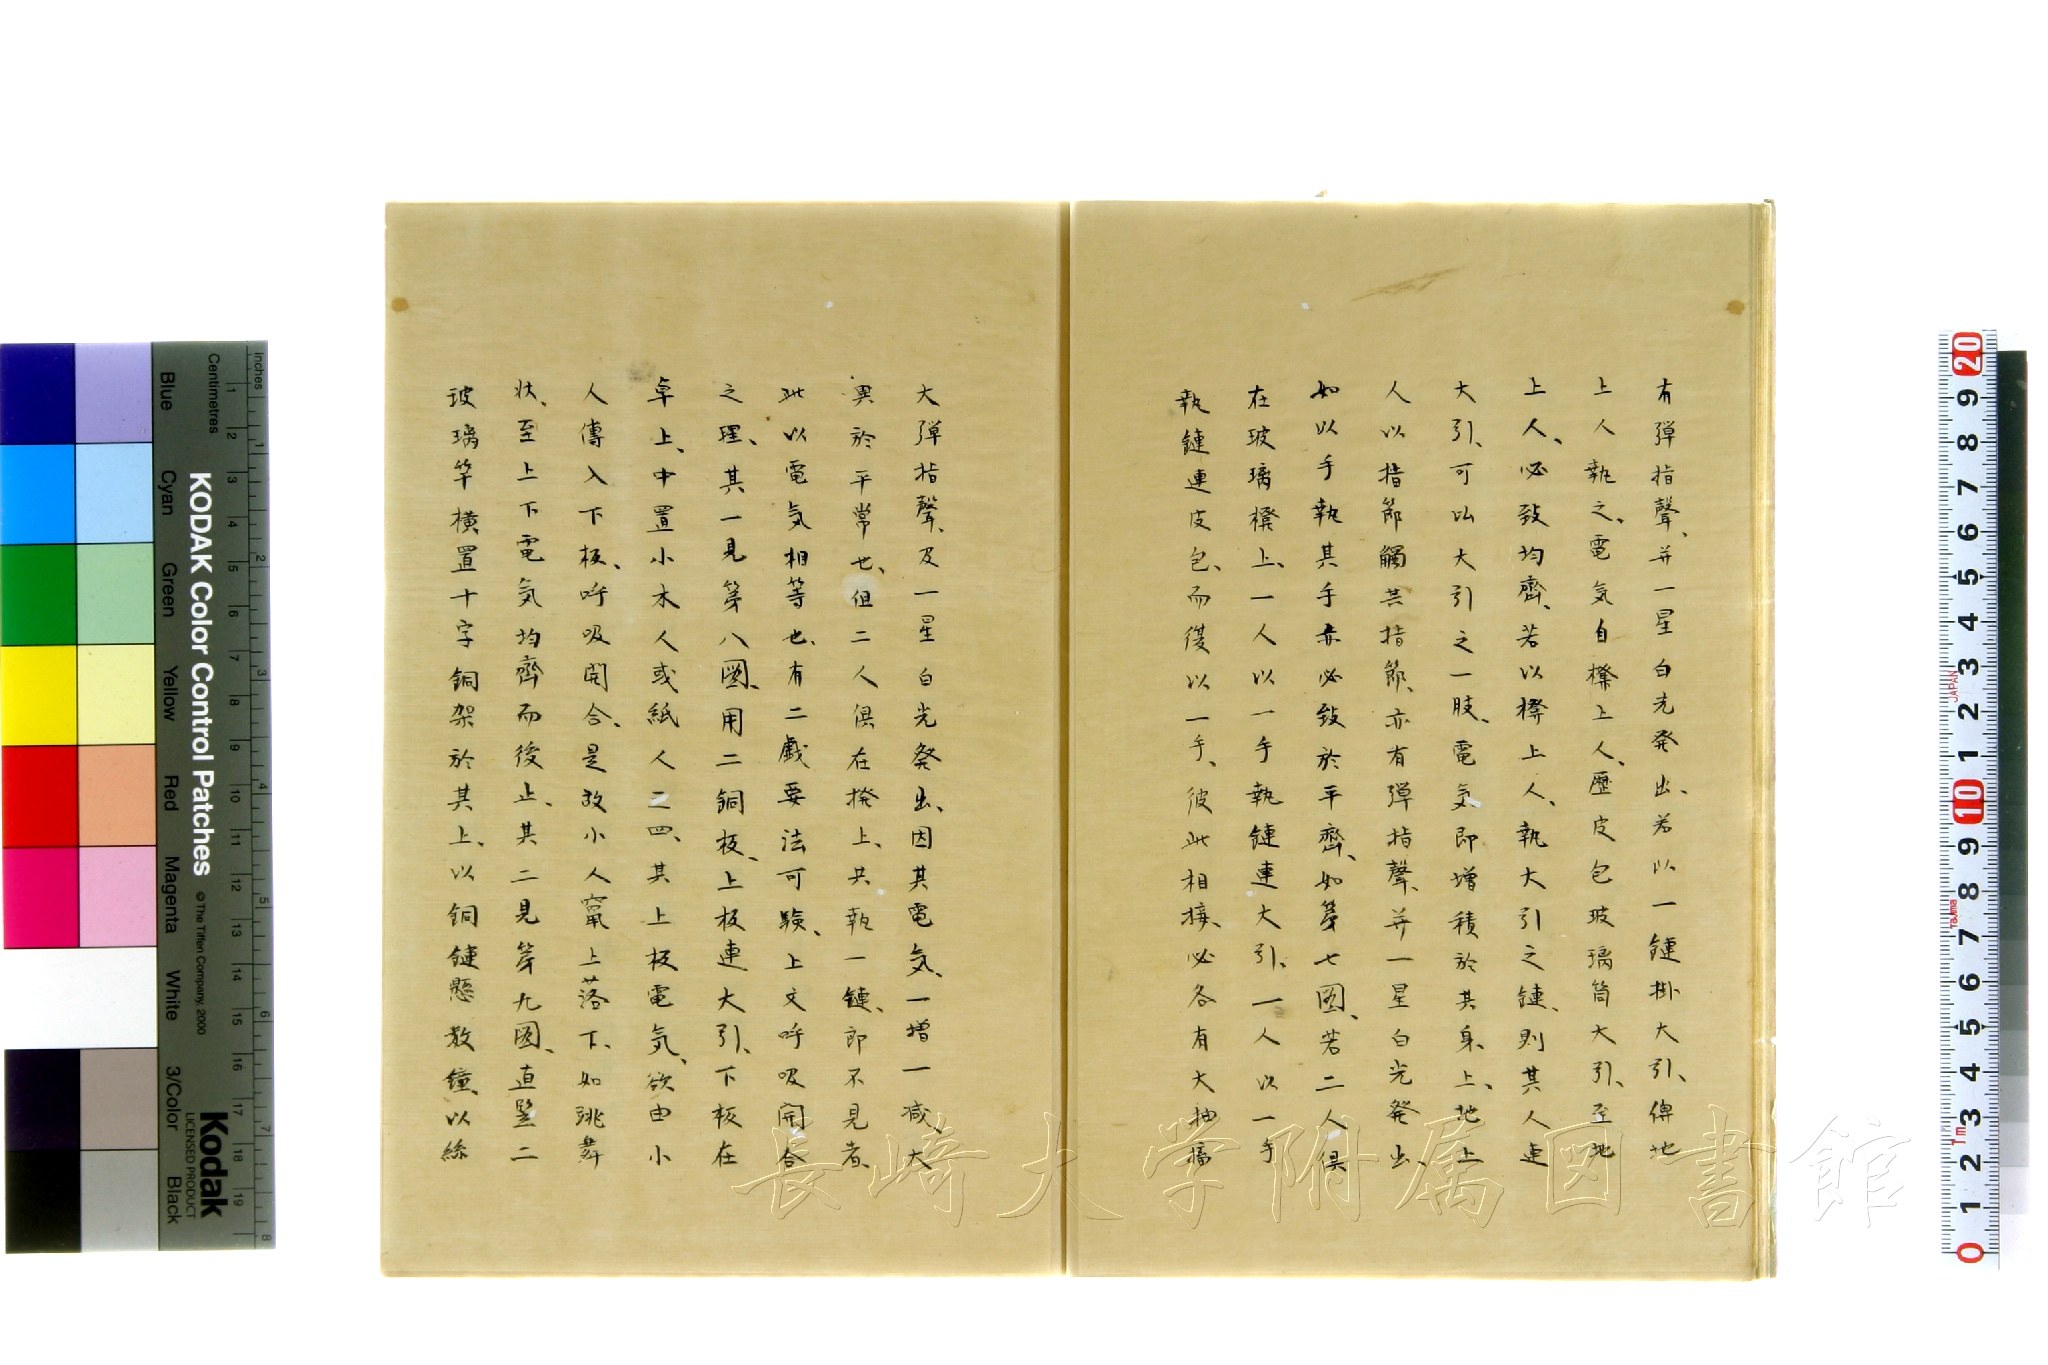 有彈指聲、并一星白光発出、若以一鏈掛大引、俾地
上人執之、電気自櫈上人、歴皮包玻璃筒大引、至地
上人、必致均齊、若以櫈上人、執大引之鏈、則其人連
大引、可以大引之一肢、電気即增積於其身上、地上
人以指節觸其指節、亦有彈指聲、并一星白光発出、
如以手執其手亦必致於平齊、如第七圖、若二人俱
在玻璃櫈上、一人以一手執鏈連大引、一人以一手
執鏈連皮包、而復以一手、彼此相接、必各有大抽搐
大彈指聲、及一星白光発出、因其電気、一增一減、大
異於平常也、但二人俱在櫈上、共執一鏈、即不見者、
此以電気相等也、有二戲耍法可験、上文呼吸開合
之理、其一見第八圖、用二銅板、上板連大引、下板在
卓上、中置小木人或紙人二四、其上板電気、欲由小
人傳入下板、呼吸開合、是故小人竄上落下、如跳舞
状、至上下電気均齊而後止、其二見第九圖、直竪二
玻璃竿橫置十字銅架於其上、以銅鏈懸数鐘、以絲
長崎大学附属図書館
KODAK Color Control Patches
© The Tiffen Company, 2000
Kodak
LICENSED PRODUCT
Inches
Centimetres
1 2 3 4 5 6 7 8 9 10 11 12 13 14 15 16 17 18 19
1 2 3 4 5 6 7 8
Blue
Cyan
Green
Yellow
Red
Magenta
White
3/Color
Black
20 9 8 7 6 5 4 3 2 1 10 9 8 7 6 5 4 3 2 1 0
JAPAN